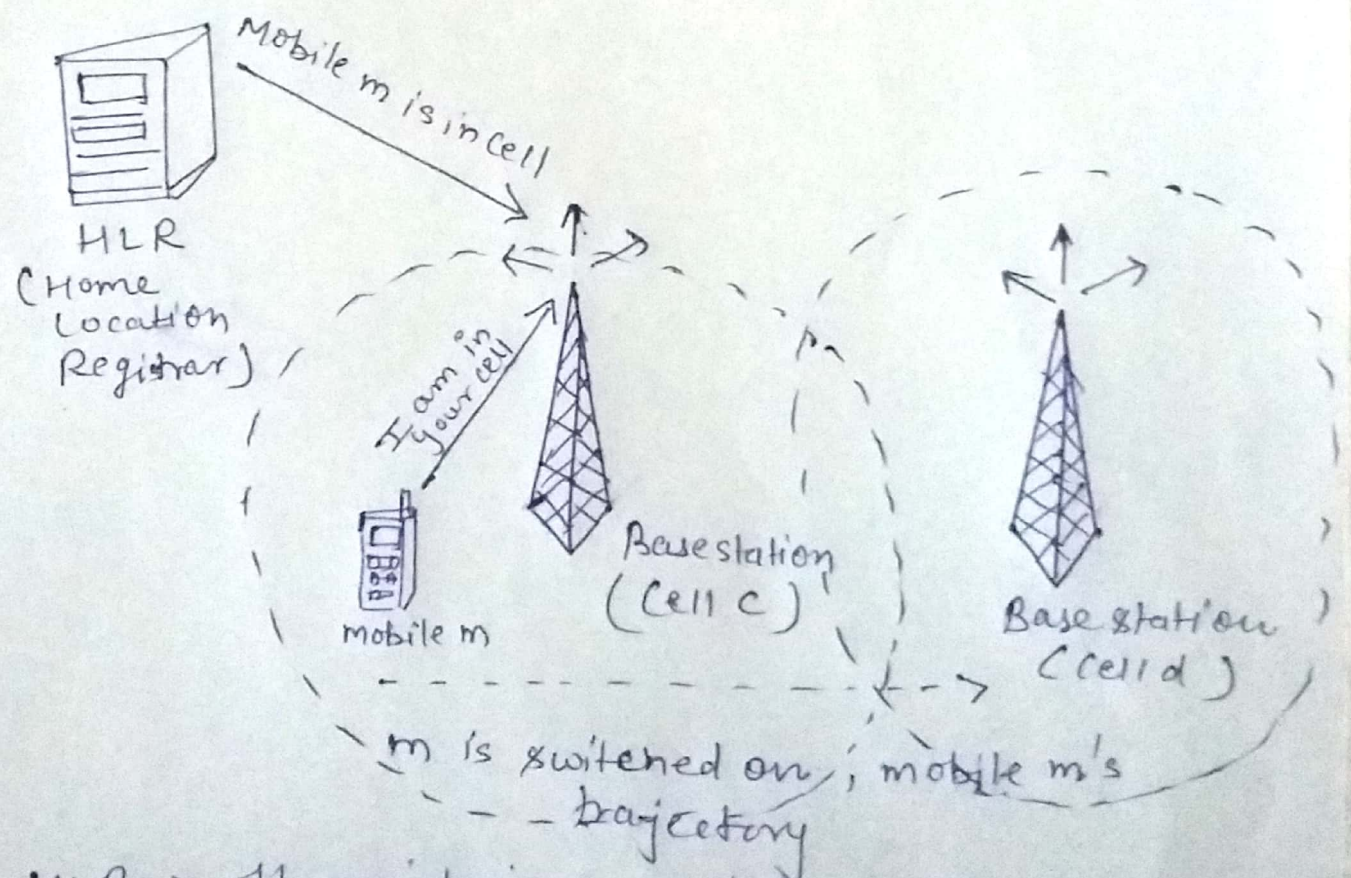 Mobile m is in cell
HLR
(Home
Location
Registrar)
I am in
your cell
mobile m
Base station
(Cell C)
Base station
(Cell d)
m is switched on, ; mobile m's
trajectory